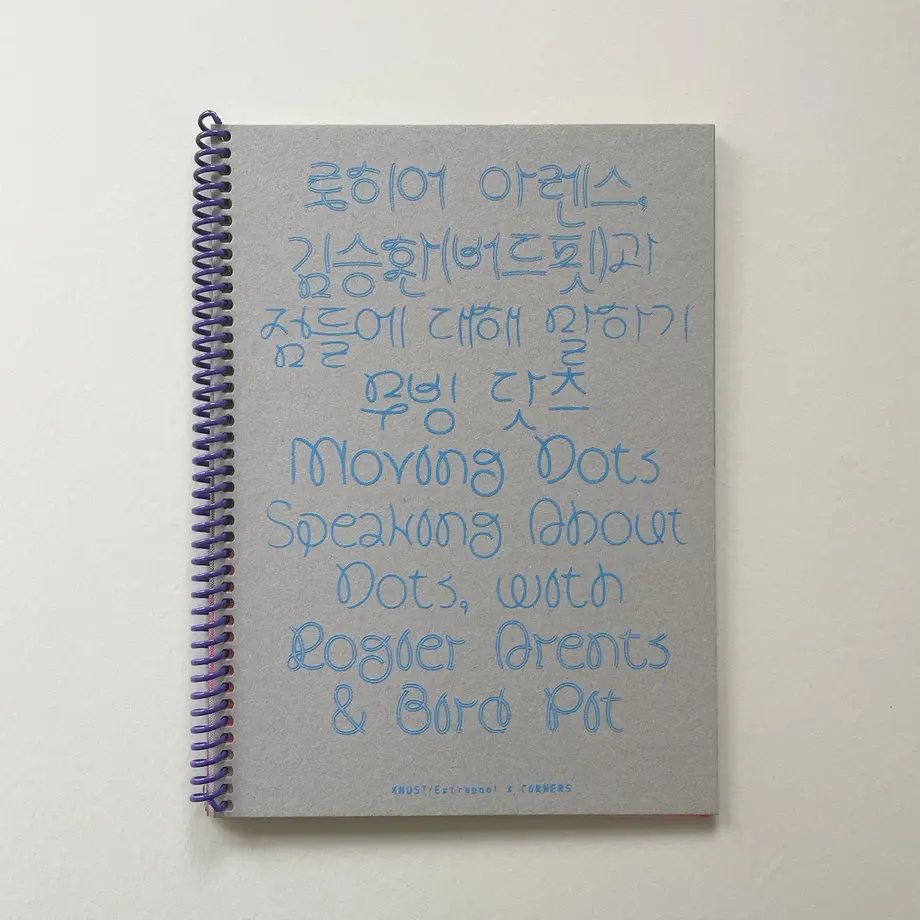 로히어 아렌스,
김승환(버드핏)과
점들에 대해 말하기
무빙 닷츠
Moving Dots
Speaking About
Dots, with
Rogier Arents
& Bird Pit
KNUST/Extrapool x CORNERS